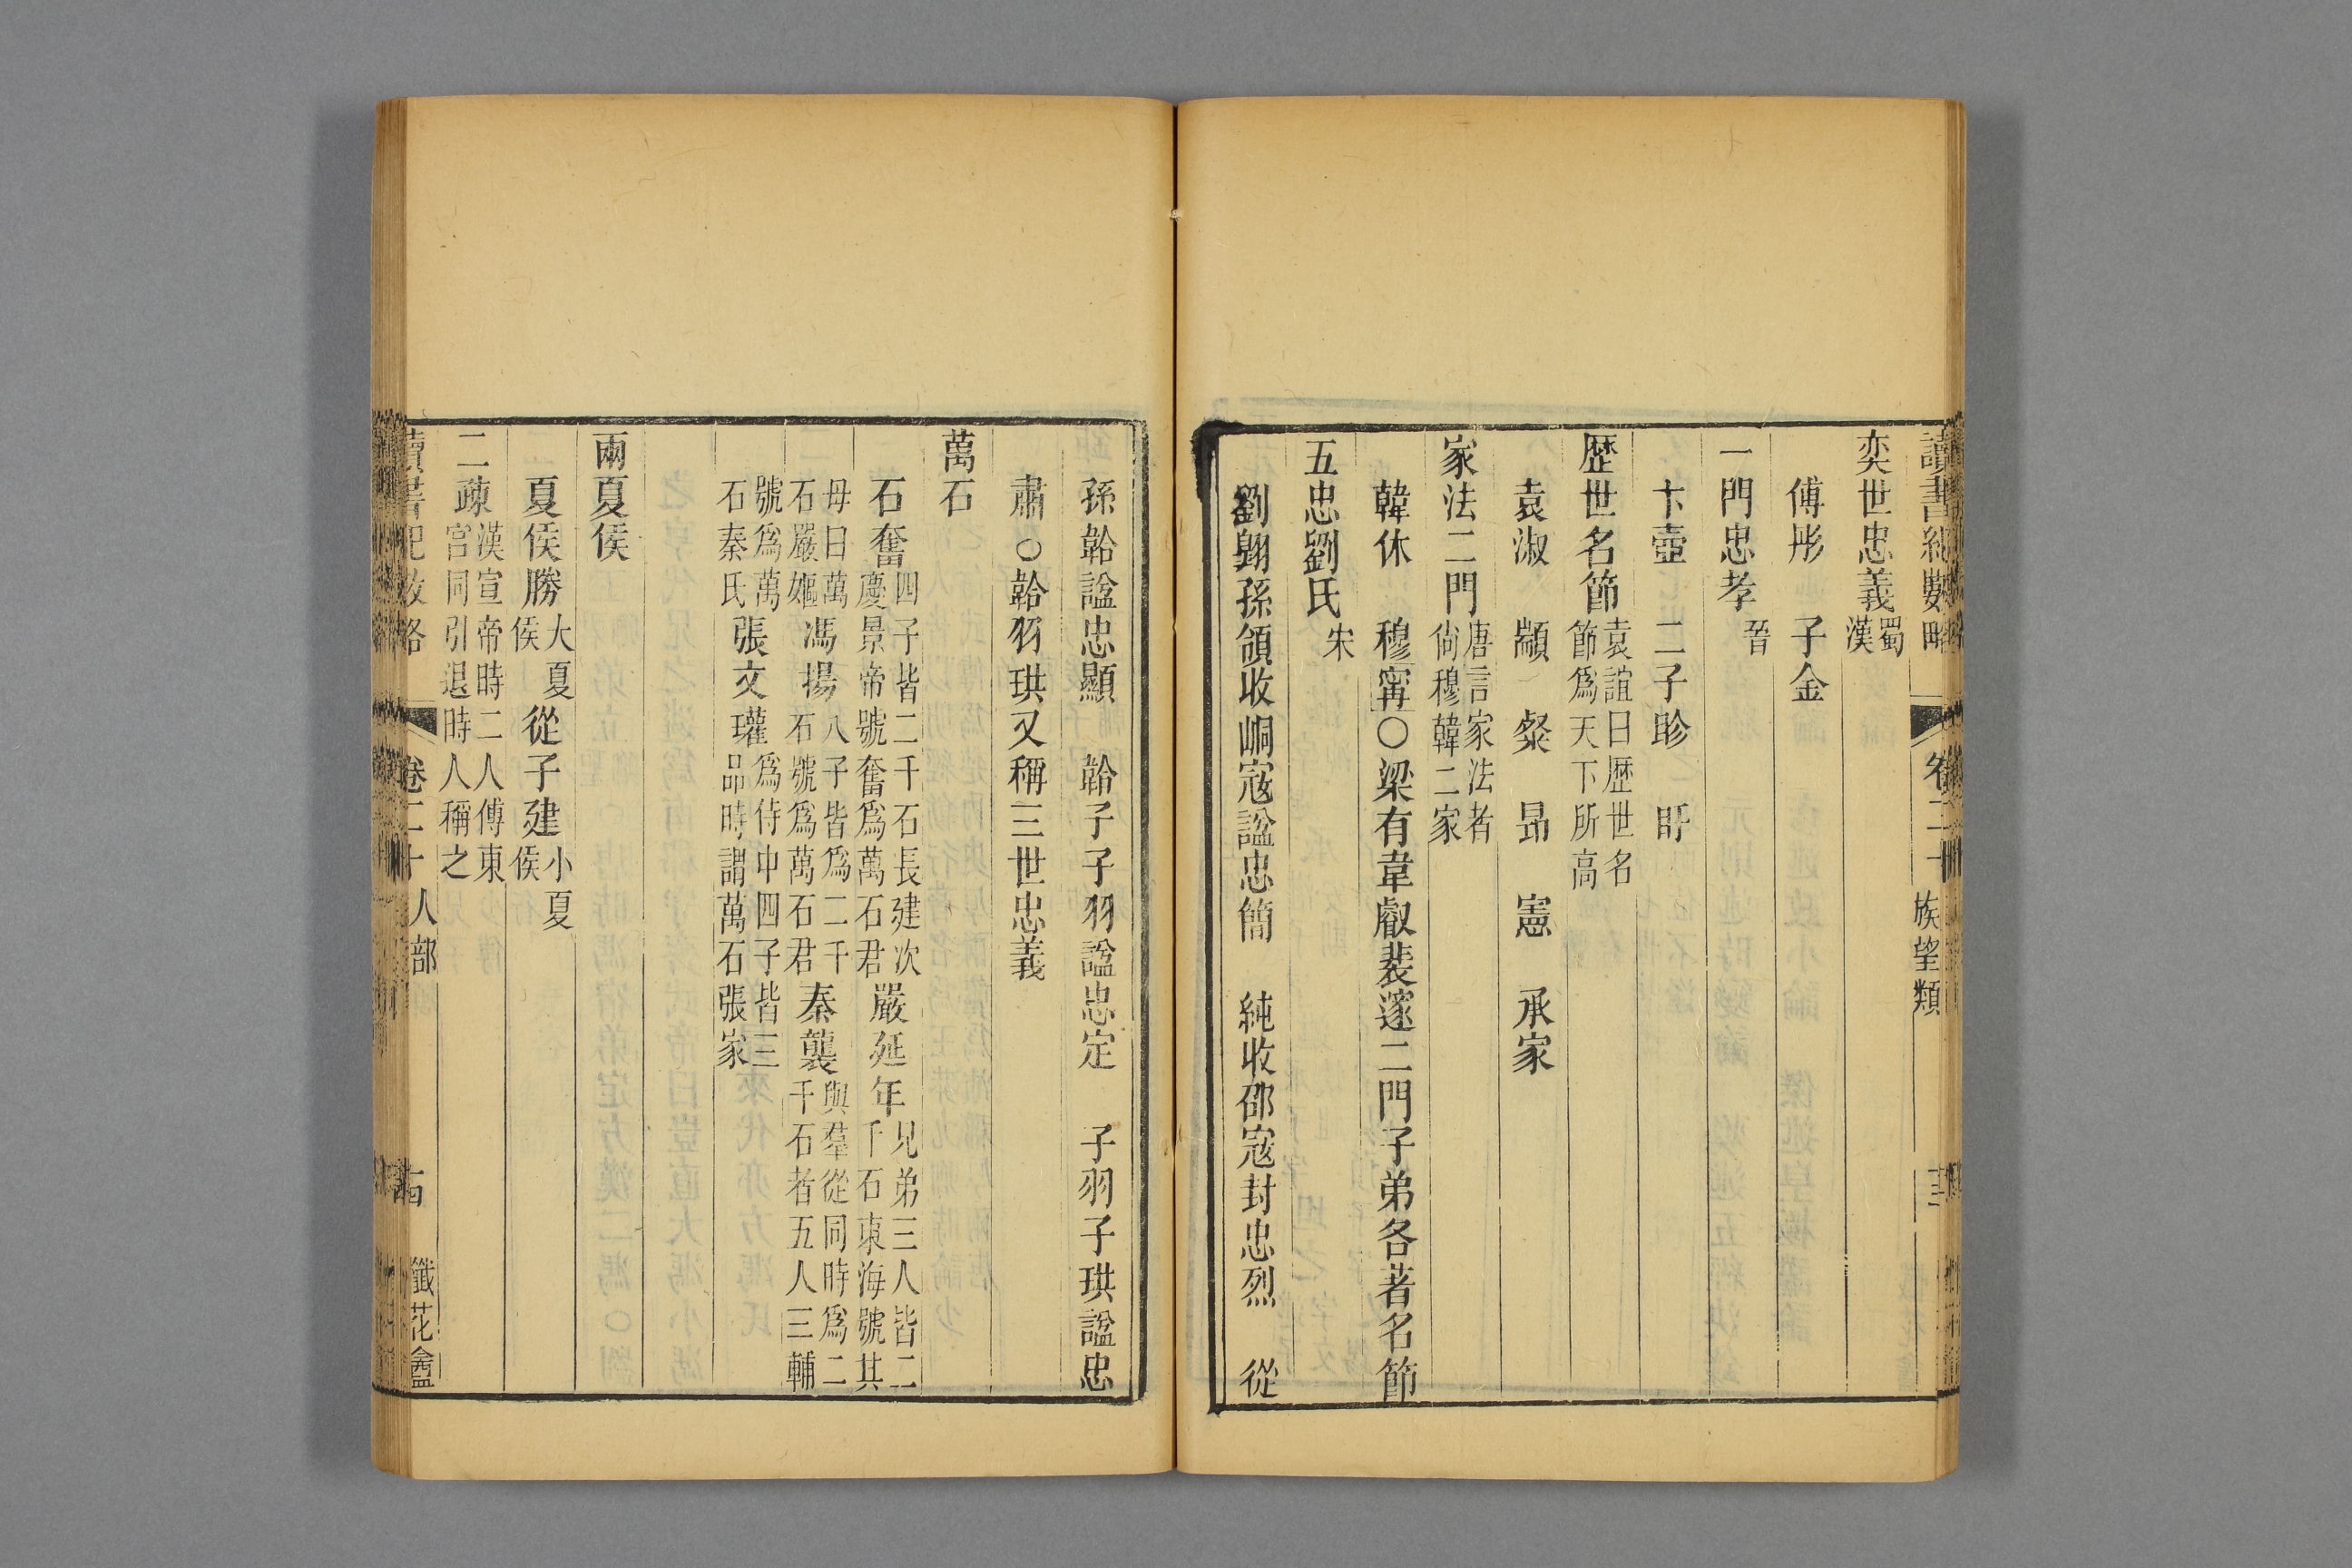 讀書紀數略 卷二十 族望類 十三
奕世忠義 蜀漢
傅彤 子金
一門忠孝 晉
卞壼 二子眕 盱
歷世名節 袁誼曰歷世名節爲天下所高
袁淑 顗 粲 昂 憲 承家
家法二門 唐言家法者尙穆韓二家
韓休 穆寗○梁有韋叡裴邃二門子弟各著名節
五忠劉氏 宋
劉翺孫頜收峒寇諡忠簡 純收邵寇封忠烈 從
孫韐諡忠顯 韐子子羽諡忠定 子羽子珙諡忠
肅○韐羽珙又稱三世忠義
萬石
石奮四子皆二千石長建次慶景帝號奮爲萬石君 嚴延年兄弟三人皆二千石東海號其
母曰萬石嚴嫗 馮揚八子皆爲二千石號爲萬石君 秦襲與羣從同時爲二千石者五人三輔
號爲萬石秦氏 張文瓘爲侍中四子皆三品時謂萬石張家
兩夏侯
夏侯勝大夏侯 從子建小夏侯
二疎漢宣帝時二人傅東宮同引退時人稱之
讀書紀數略 卷二十 人部 十四 懺花盦